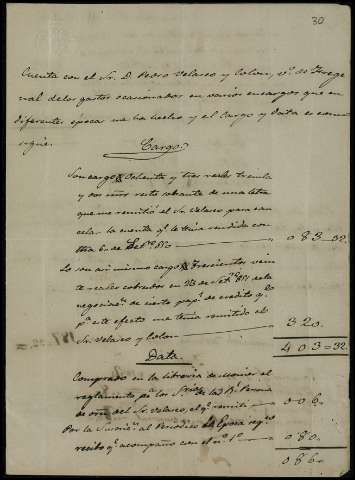 30
Cuenta con el Sr. D. Pedro Velasco y Colon, vº. de
de los gastos ocasionados en varios encargos que en
diferentes épocas me ha hecho y el Cargo y Data es como
sigue.
Cargo
Son cargo Ochenta y tres reales treinta
y dos mrs resto sobrante de una letra
que me remitió el Sr. Velasco para can
celar la cuenta qe. le tenia rendida con
fha 6 de 083=32.
Lo son asi mismo cargo Trescientos vein
te reales cobrados en 23 de Setre. de la
negociacn. de cierto papl. de credito qe.
pa. este efecto me tenia remitido el
Sr. Velasco y Colon 320.
403=32.
Data
Comprado en la libreria de Monier el
reglamento pa. los de la Rl. Persona
de orn. del Sr. Velasco, el qe. remití 006.
Por la Suscricn. al Periodico la Epoca segn.
recibo qe. acompaño con el nº. 1º 080.
086.